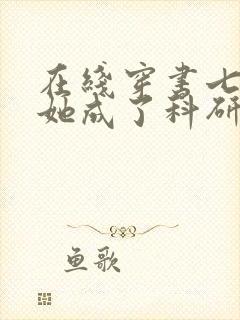 在线穿书七
她成了科研
鱼歌